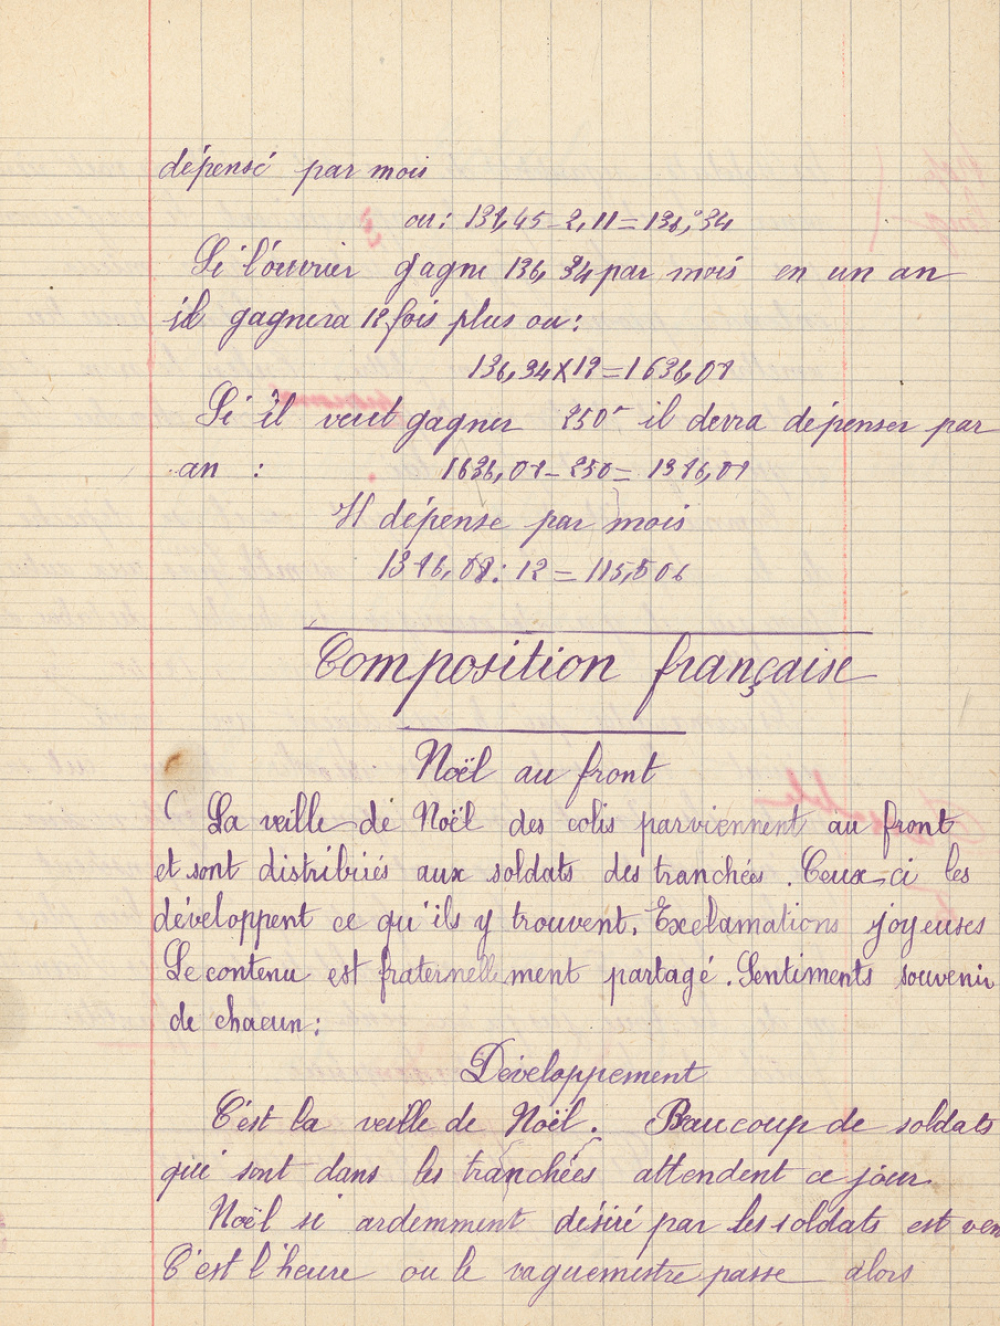 dépensé par mois
ou: 138,45 - 2,11 = 136,34
Si l'ouvrier gagne 136,34 par mois en un an
il gagnera 12 fois plus ou:
136,34 X 12 = 1636,08
Si il veut gagner 250f il devra dépenser par
an :
1636,08 - 250 = 1386,08
Il dépense par mois
1386,08 : 12 = 115,506
Composition française
Noël au front
( La veille de Noël des colis parviennent au front
et sont distribués aux soldats des tranchées. Ceux-ci les
développent ce qu'ils y trouvent. Exclamations joyeuses
Le contenu est fraternellement partagé. Sentiments souvenir
de chacun:
Développement
C'est la veille de Noël. Beaucoup de soldats
qui sont dans les tranchées attendent ce jour
Noël si ardemment désiré par les soldats est ven
C'est l'heure ou le vaguemestre passe alors